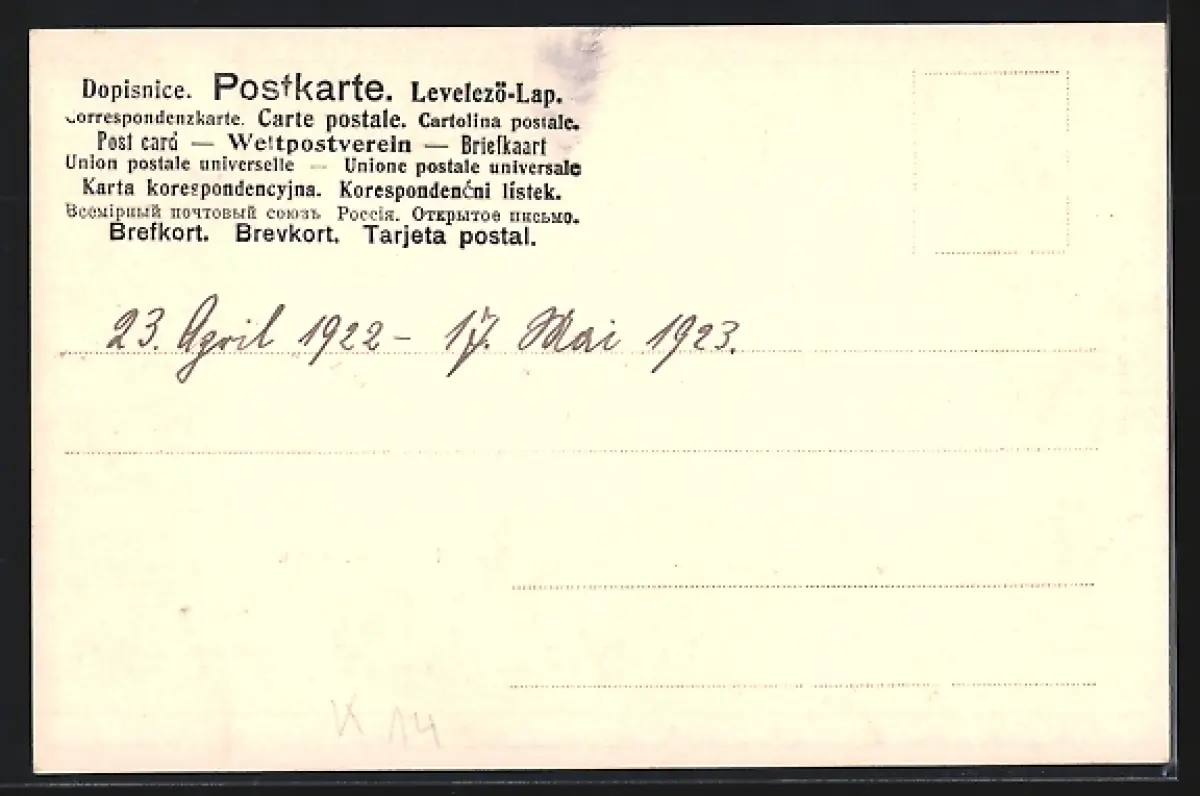 Dopisnice. Postkarte. Levelező-Lap.
Correspondenzkarte. Carte postale. Cartolina postale.
Post card — Weltpostverein — Briefkaart
Union postale universelle — Unione postale universale
Karta korespondencyjna. Korespondenční lístek.
Всемірный почтовый союзъ Россія. Открытое письмо.
Brefkort. Brevkort. Tarjeta postal.
23. April 1922 – 17. Mai 1923.
K 14